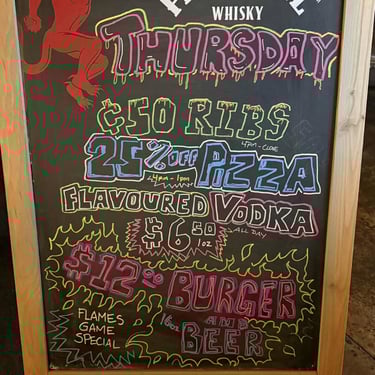 WHISKY
THURSDAY
¢50 RIBS
4PM - CLOSE
25% OFF PIZZA
FLAVOURED VODKA
$6.50 1oz
ALL DAY
$12.00 BURGER
AND
16oz BEER
FLAMES
GAME
SPECIAL